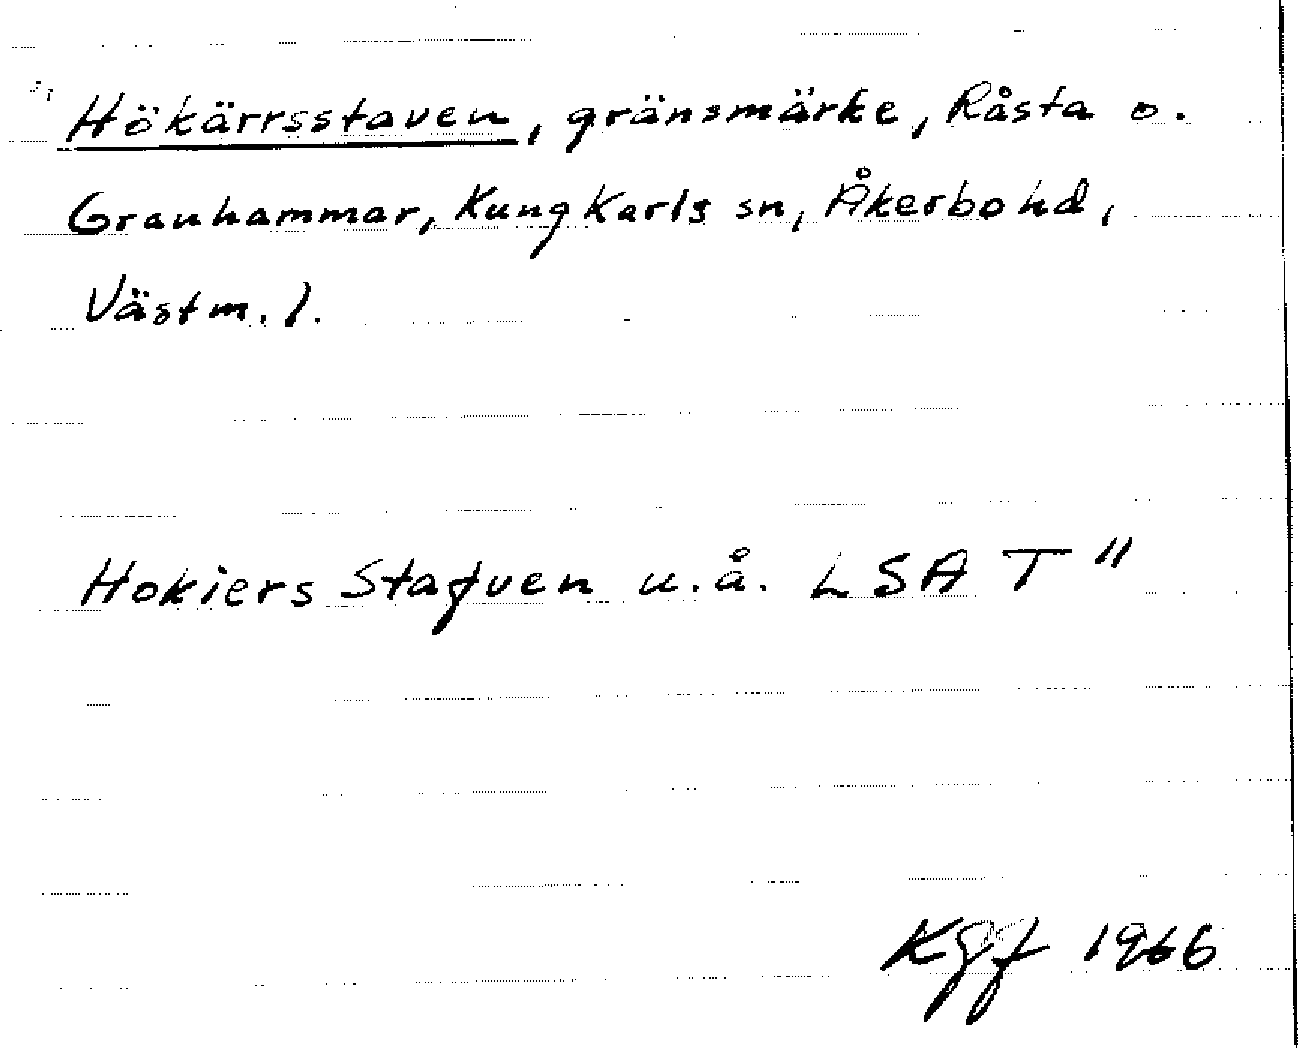 Hökärrsstaven, gränsmärke, Råsta o.
Granhammar, Kung Karls sn, Åkerbo hd,
Västm. l.
Hokiers Stafven u.å. LSA T"
Kgf 1966